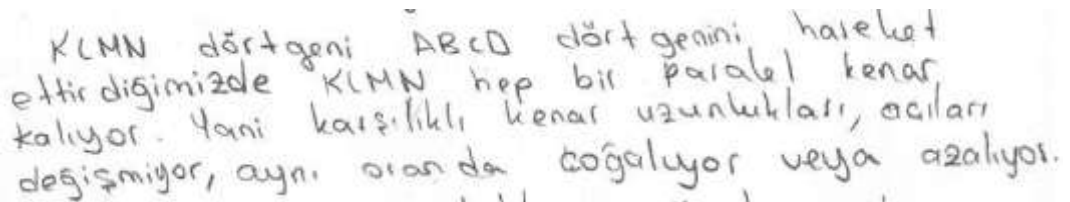 KLMN dörtgeni ABCD dörtgenini hareket
ettirdiğimizde KLMN hep bir paralel kenar
kalıyor. Yani karşılıklı kenar uzunlukları, açıları
değişmiyor, aynı oranda çoğalıyor veya azalıyor.